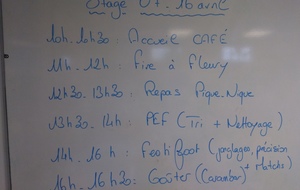 Stage U7. 16 avril
10h. 10h30 : Accueil CAFÉ
11h - 12h : Fire à Fleury
12h30 - 13h30 : Repas Pique-Nique
13h30 - 14h : PEF (Tri + Nettoyage)
14h - 16h : Footifoot (jonglages, précision + Matchs)
16h - 16h30 : Goûter (Carambar)